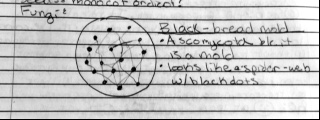 Fungi
Black-bread mold
• Ascomycota b/c it
is a mold
• looks like a spider-web
w/ black dots